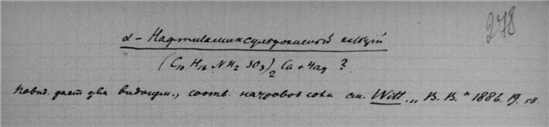 278
α - Нафтиламинсульфокислый кальций
(C10 H16 NH2 SO3)2 Ca + 4aq ?
даст два видоизм., соотв. натровой соли см. Witt „B. B.“ 1886. 19.